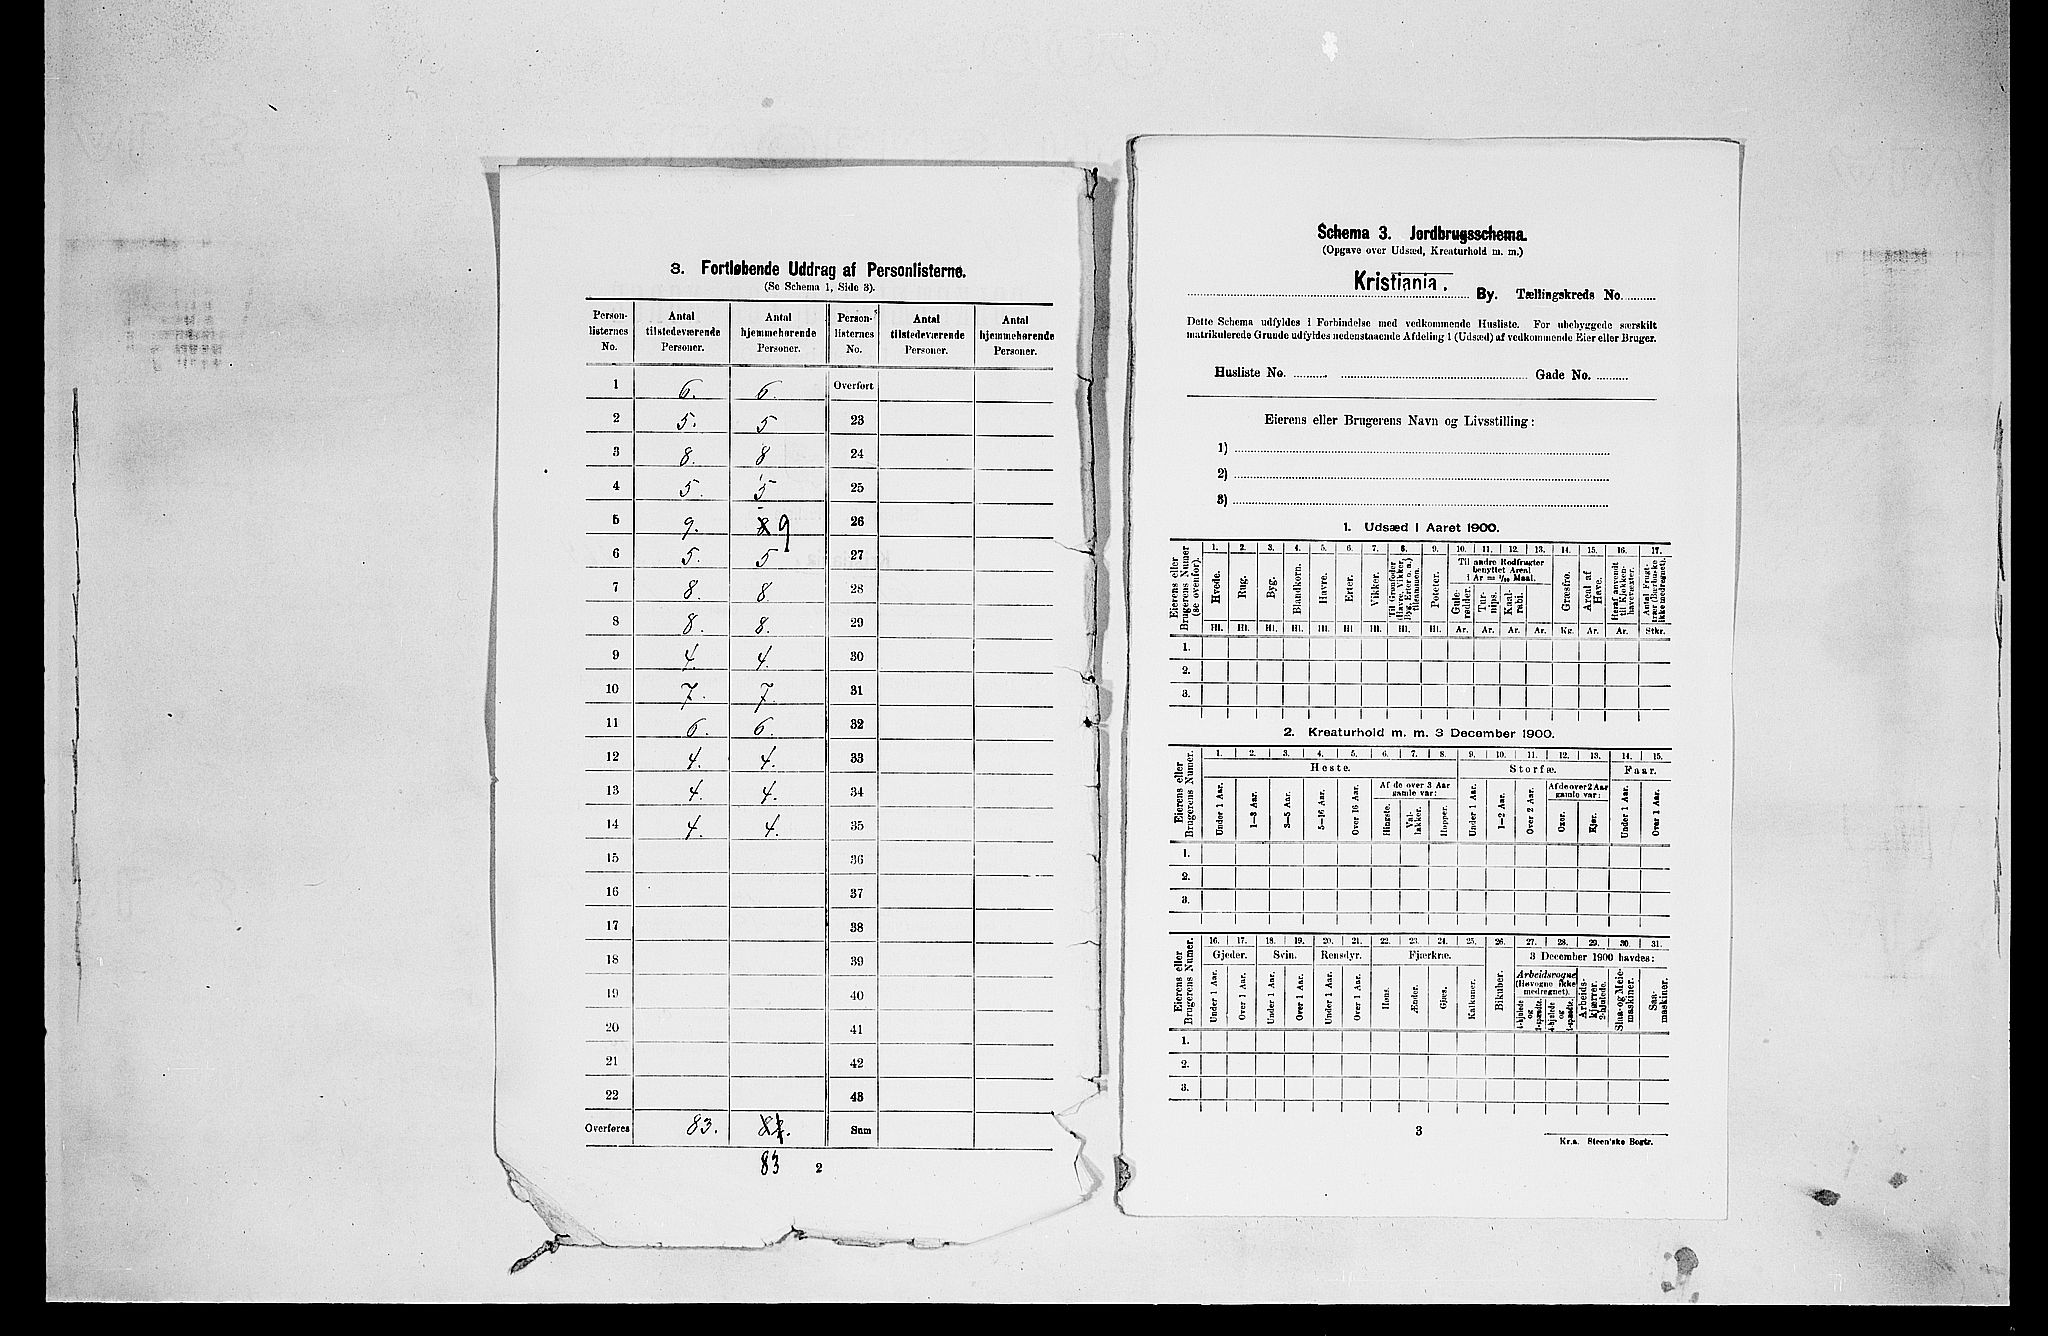 3. Fortløbende Uddrag af Personlisterne.
(Se Schema 1, Side 3).
Person-listernes No. | Antal tilstedeværende Personer. | Antal hjemmehørende Personer. | Person-listernes No. | Antal tilstedeværende Personer. | Antal hjemmehørende Personer.
1 6. 6. Overført
2 5. 5 23
3 8. 8 24
4 5. 5 25
5 9. 8 9 26
6 5. 5 27
7 8. 8. 28
8 8. 8. 29
9 4. 4. 30
10 7. 7. 31
11 6. 6. 32
12 4. 4. 33
13 4. 4. 34
14 4. 4. 35
15 36
16 37
17 38
18 39
19 40
20 41
21 42
22 43
Overføres 83. 82. Sum
83 2
Schema 3. Jordbrugsschema.
(Opgave over Udsæd, Kreaturhold m. m.)
Kristiania. By. Tællingskreds No.
Dette Schema udfyldes i Forbindelse med vedkommende Husliste. For ubebyggede særskilt
matrikulerede Grunde udfyldes nedenstaaende Afdeling 1 (Udsæd) af vedkommende Eier eller Bruger.
Husliste No. Gade No.
Eierens eller Brugerens Navn og Livsstilling:
1)
2)
3)
1. Udsæd i Aaret 1900.
Eierens eller Brugerens Numer (se ovenfor).
1. 2. 3. 4. 5. 6. 7. 8. 9. 10. 11. 12. 13. 14. 15. 16. 17.
Hvede. Rug. Byg. Blandkorn. Havre. Erter. Vikker. Til Grønfoder (Havre, Vikker, Byg, Erter o. a.) tilsammen. Poteter.
Til andre Rodfrugter benyttet Areal
1 Ar = 1/10 Maal.
Gule-rødder. Tur-nips. Kaal-rabi. Græsfrø. Areal af Have. Heraf anvendt til Kjøkken-havevæxter. Antal Frugt-trær (Buskvæxter ikke medregnet).
Hl. Hl. Hl. Hl. Hl. Hl. Hl. Hl. Hl. Ar. Ar. Ar. Ar. Kg. Ar. Ar. Stkr.
1.
2.
3.
2. Kreaturhold m. m. 3 December 1900.
Eierens eller Brugerens Numer.
1. 2. 3. 4. 5. 6. 7. 8. 9. 10. 11. 12. 13. 14. 15.
Heste. Storfæ. Faar.
Af de over 3 Aar gamle var: Af de over 2 Aar gamle var:
Under 1 Aar. 1—3 Aar. 3—5 Aar. 5—16 Aar. Over 16 Aar. Hingste. Val-lakker. Hopper. Under 1 Aar. 1—2 Aar. Over 2 Aar. Oxer. Kjør. Under 1 Aar. Over 1 Aar.
1.
2.
3.
Eierens eller Brugerens Numer.
16. 17. 18. 19. 20. 21. 22. 23. 24. 25. 26. 27. 28. 29. 30. 31.
Gjeder. Svin. Rensdyr. Fjærkræ. 3 December 1900 havdes:
Arbeidsvogne (Høvogne ikke medregnet).
Under 1 Aar. Over 1 Aar. Under 1 Aar. Over 1 Aar. Under 1 Aar. Over 1 Aar. Høns. Ænder. Gjæs. Kalkuner. Bikuber. 4-hjulede og 2-spændte. 4-hjulede og 1-spændte. Arbeids-kjærrer, 2-hjulede. Slaa- og Meie-maskiner. Saa-maskiner.
1.
2.
3.
3
Kr.a. Steen'ske Bogtr.